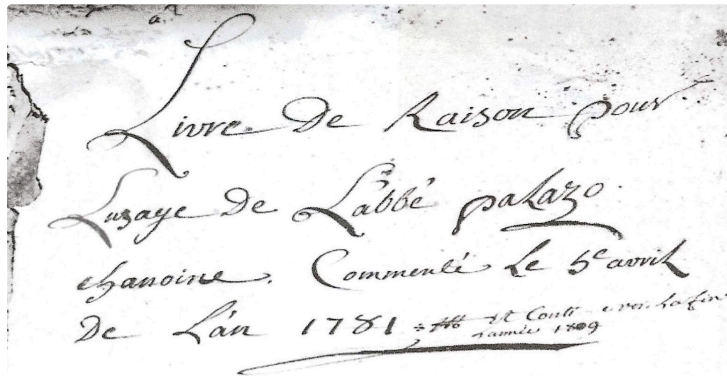 Livre De Raison pour
Luzage De L'abbé palazo.
chanoine. Commencé Le 5e avril
De L'an 1781
et Conti vers La fin
L'année 1809